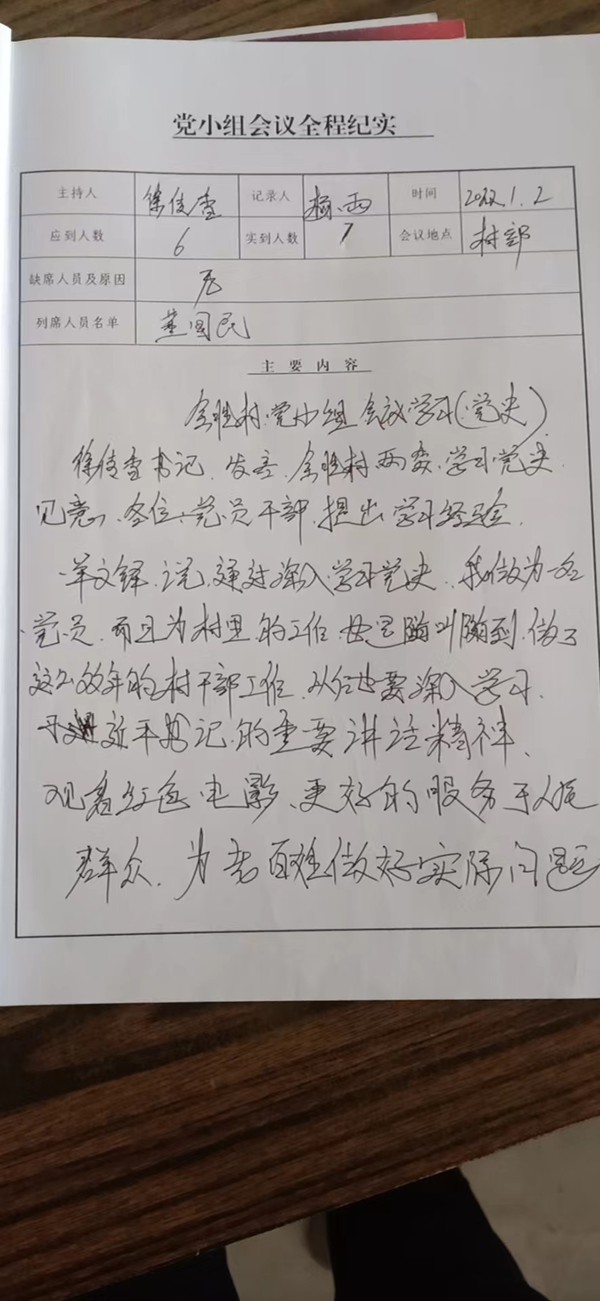 党小组会议全程纪实
主持人 徐传奎 记录人 杨雨 时间 2022.1.2
应到人数 6 实到人数 7 会议地点 村部
缺席人员及原因 无
列席人员名单 董国民
主要内容
胜村党小组会议学习(党史)
徐传奎书记发言 胜村两委学习党史
见意、各位党员干部提出学习经验
说通过深入学习党史 我做为一名
党员 而且为村里的工作 随叫随到 做了
这么多年的村干部工作 也要深入学习
习近平书记的重要讲话精神、
观看红色电影、更好的服务于人民
群众、为老百姓做好实际问题